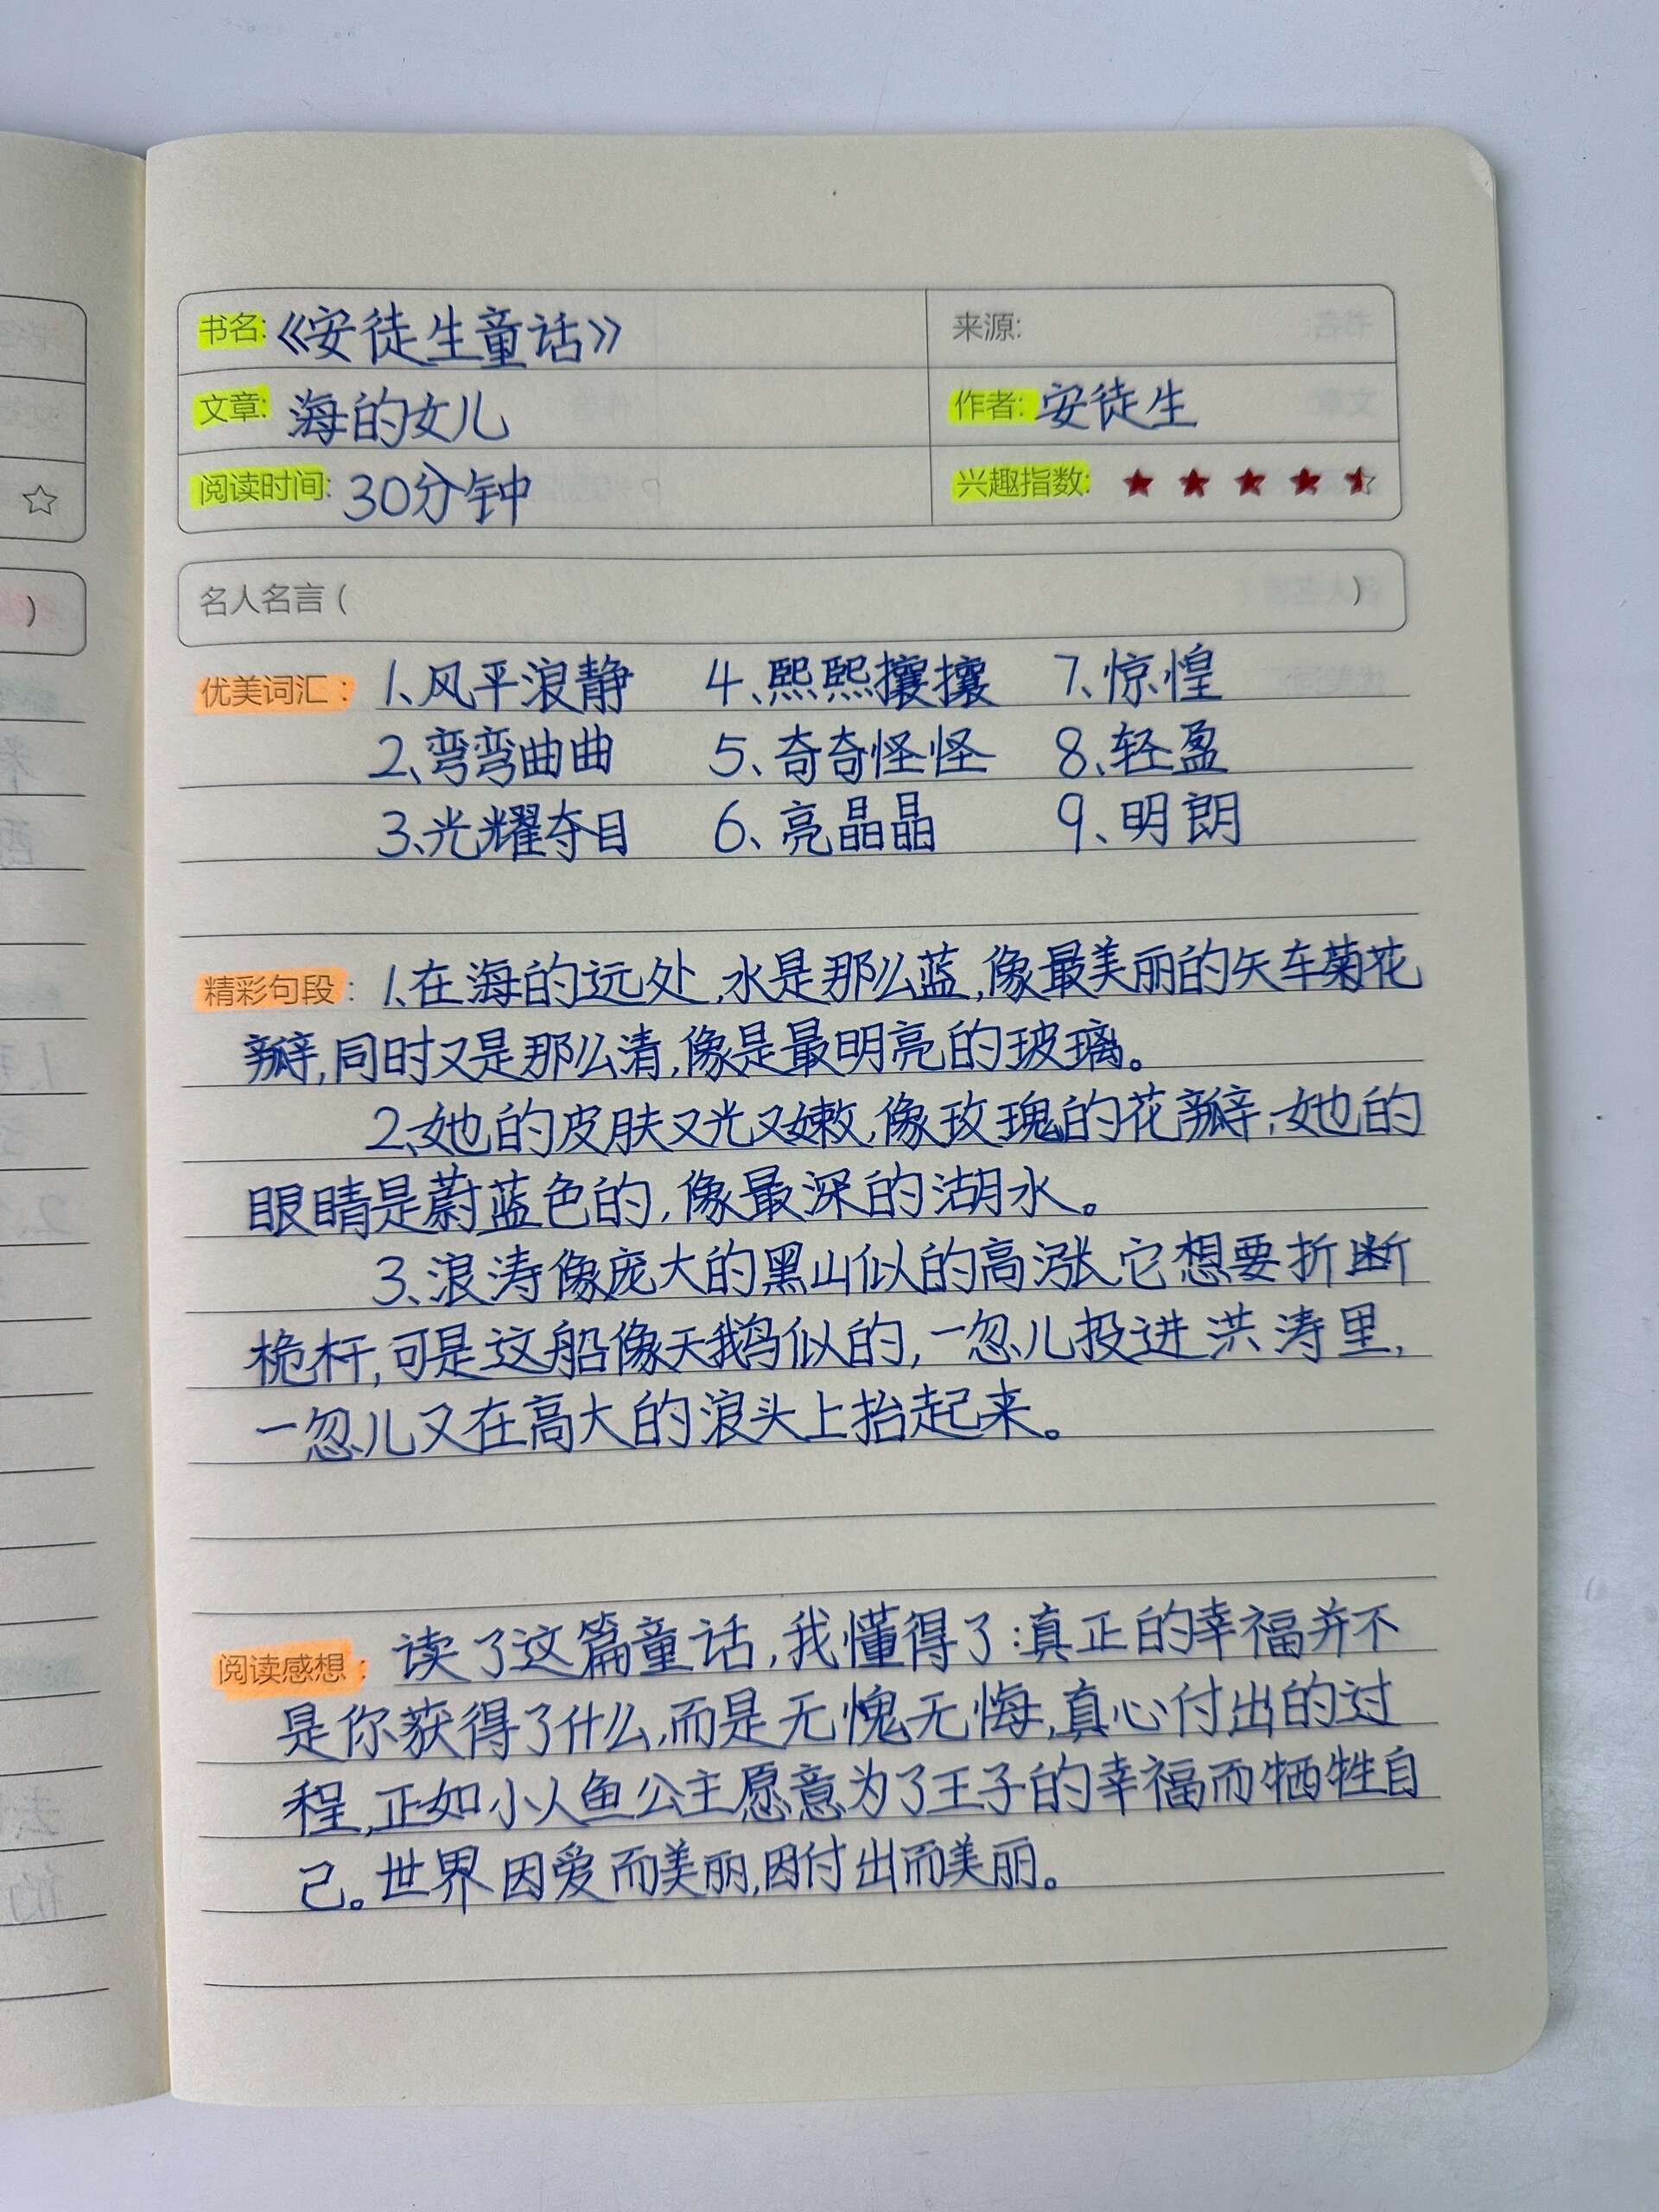 书名:《安徒生童话》 来源:
文章: 海的女儿 作者: 安徒生
阅读时间: 30分钟 兴趣指数:
名人名言( )
优美词汇: 1、风平浪静 4、熙熙攘攘 7、惊惶
2、弯弯曲曲 5、奇奇怪怪 8、轻盈
3、光耀夺目 6、亮晶晶 9、明朗
精彩句段: 1、在海的远处,水是那么蓝,像最美丽的矢车菊花
瓣,同时又是那么清,像是最明亮的玻璃。
2、她的皮肤又光又嫩,像玫瑰的花瓣;她的
眼睛是蔚蓝色的,像最深的湖水。
3、浪涛像庞大的黑山似的高涨,它想要折断
桅杆,可是这船像天鹅似的,一忽儿投进洪涛里,
一忽儿又在高大的浪头上抬起来。
阅读感想: 读了这篇童话,我懂得了:真正的幸福并不
是你获得了什么,而是无愧无悔,真心付出的过
程,正如小人鱼公主愿意为了王子的幸福而牺牲自
己。世界因爱而美丽,因付出而美丽。